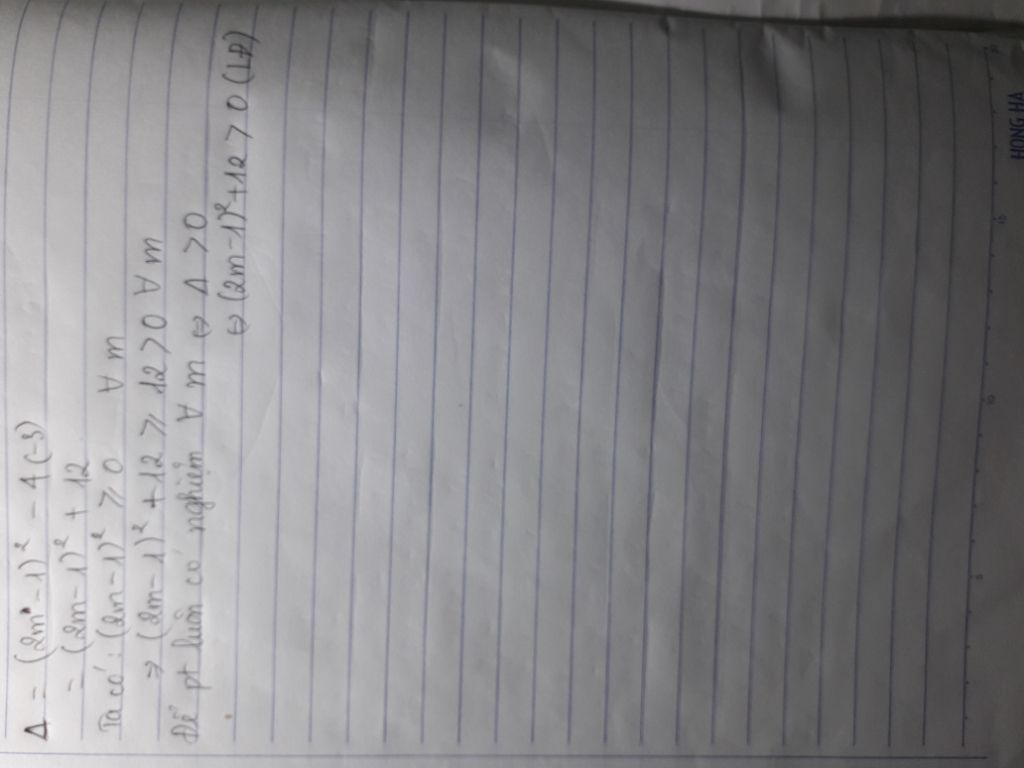 Δ = (2m - 1)² - 4(-3)
= (2m - 1)² + 12
Ta có: (2m - 1)² ≥ 0 ∀ m
⇒ (2m - 1)² + 12 ≥ 12 > 0 ∀ m
Để pt luôn có nghiệm ∀ m ⇔ Δ > 0
⇔ (2m - 1)² + 12 > 0 (LĐ)
HONG HA